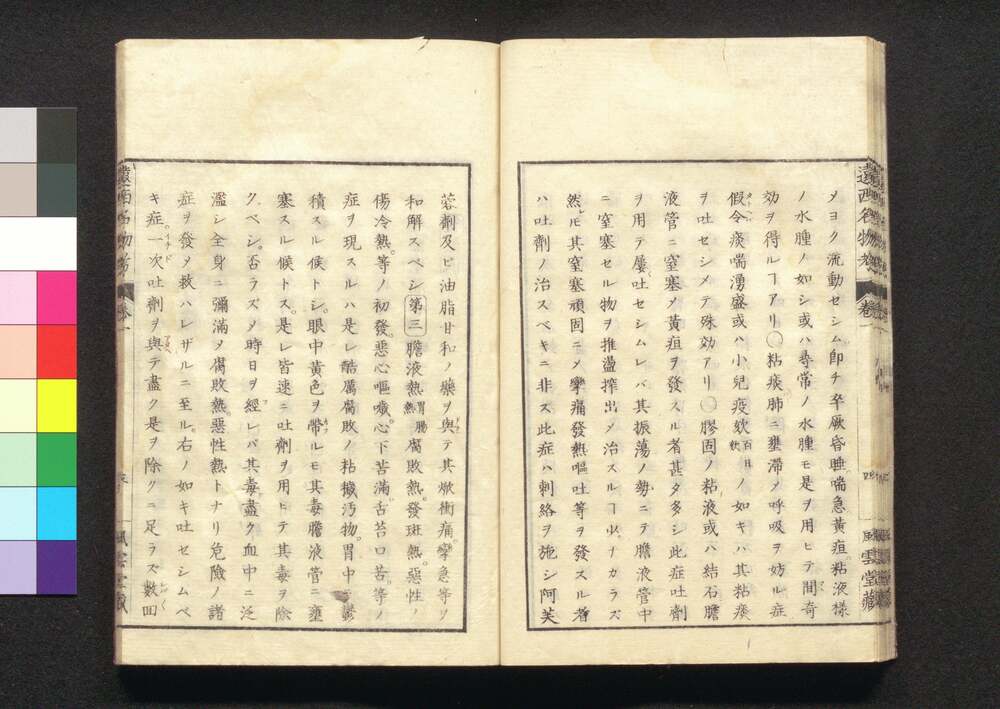 メヨク流動セシム即チ卒厥昏睡喘急黄疸粘液様
ノ水腫ノ如シ或ハ尋常ノ水腫モ是ヲ用ヒテ間奇
効ヲ得ルヿアリ○粘痰肺ニ壅滞メ呼吸ヲ妨ル症
假令痰喘湧盛或ハ小兒疫欬百日欬ノ如キハ其粘痰
ヲ吐セシメテ殊効アリ○膠固ノ粘液或ハ結石膽
液管ニ窒塞メ黄疸ヲ發スル者甚タ多シ此症吐劑
ヲ用テ屢吐セシムレバ其振蕩ノ勢ニテ膽液管中
ニ窒塞セル物ヲ推盪搾出メ治スルヿ少ナカラズ
然レ𪜈其窒塞頑固ニメ攣痛發熱嘔吐等ヲ發スル者
ハ吐劑ノ治スベキニ非ス此症ハ刺絡ヲ施シ阿芙
蓉劑及ビ油脂甘和ノ藥ヲ與テ其焮衝痛攣急等ヲ
和解スベシ第三膽液熱胃腸熱腐敗熱發斑熱惡性ノ
傷冷熱等ノ初發惡心嘔噦心下苦滿舌苔口苦等ノ
症ヲ現スルハ是レ酷厲腐敗ノ粘攘汚物胃中ニ鬱
積スル候トシ眼中黄色ヲ帶ルモ其毒膽液管ニ壅
塞スル候トス是レ皆速ニ吐劑ヲ用ヒテ其毒ヲ除
クベシ否ラズメ時日ヲ經レバ其毒盡ク血中ニ泛
濫シ全身ニ彌滿メ腐敗熱惡性熱トナリ危險ノ諸
症ヲ發メ救ハレザルニ至ル右ノ如キ吐セシムベ
キ症一次吐劑ヲ與テ盡ク是ヲ除クニ足ラズ數回
遠西名物考
卷一
風雲堂藏